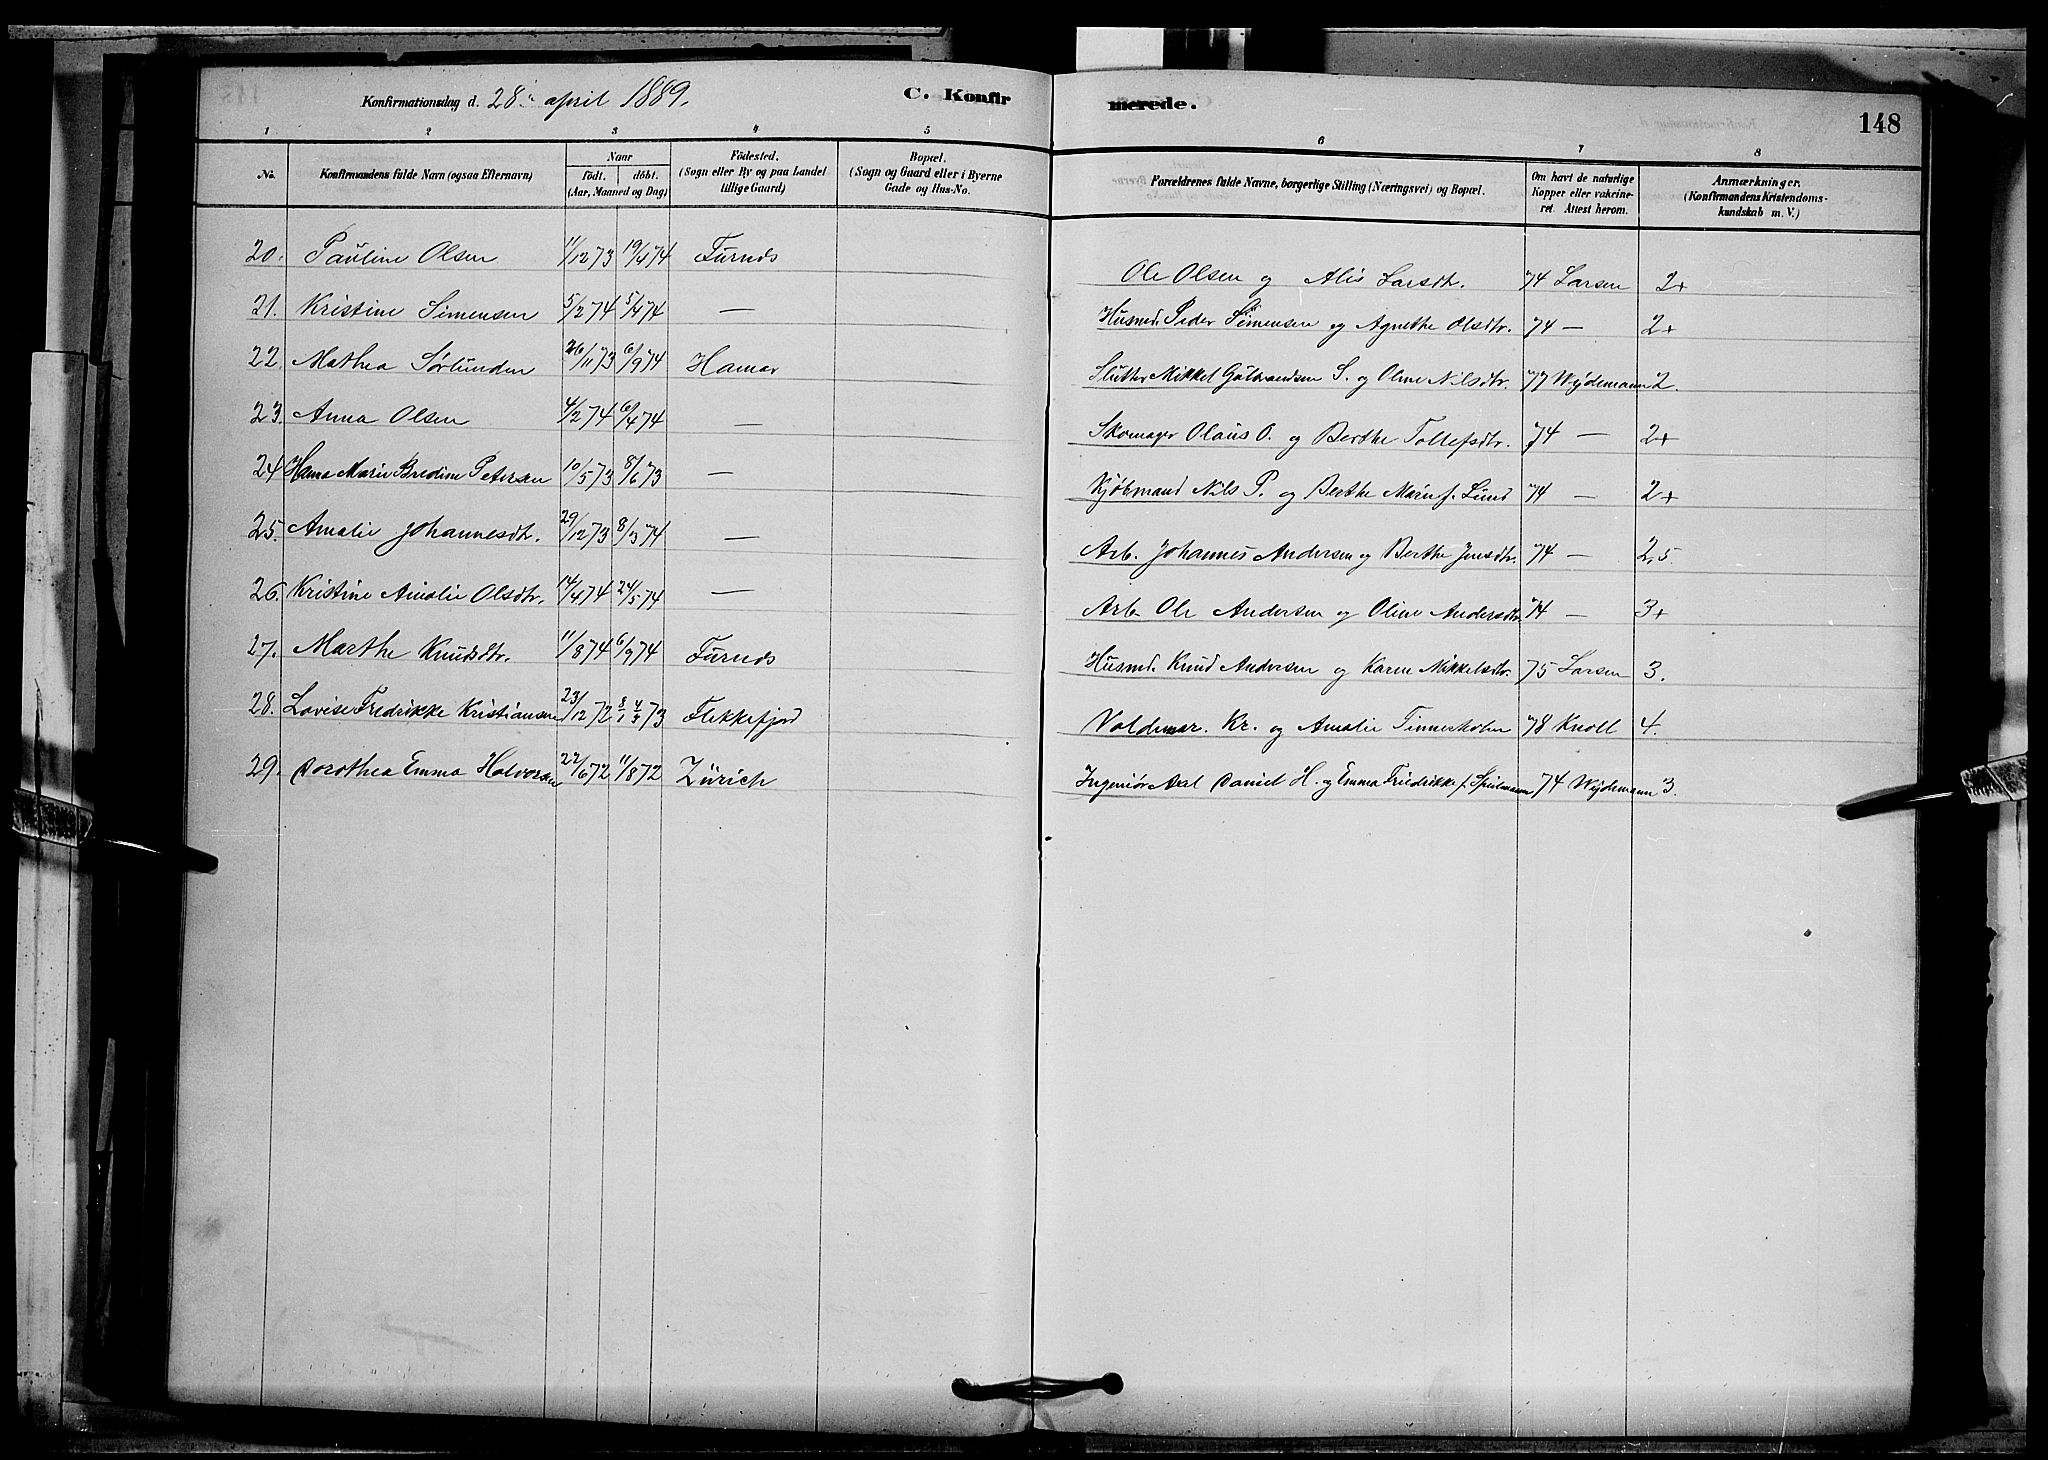 Konfirmationsdag d. 28. april 1889. C. Konfir merede. 148
1 2 3 4 5 6 7 8
No. Konfirmandens fulde Navn (ogsaa Efternavn) Naar födt. döbt. (Aar, Maaned og Dag) Födested. (Sogn eller By og paa Landet tillige Gaard) Bopæl. (Sogn og Gaard eller i Byerne Gade og Hus-No. Forældrenes fulde Navne, borgerlige Stilling (Næringsvei) og Bopæl. Om havt de naturlige Kopper eller vakcineret. Attest herom. Anmærkninger. (Konfirmandens Kristendomskundskab m. V.)
20. Pauline Olsen 11/12 73 19/4 74 Furnæs Ole Olsen og Alis Larsdtr. 74 Larsen 2+
21. Kristine Simensen 5/2 74 5/4 74 — Husmd. Peder Simensen og Agnethe Olsdtr. 74 — 2+
22. Mathea Sørlunden 26/11 73 6/9 74 Hamar Slutter Mikkel Gulbrandsen S. og Oline Nilsdtr. 77 Wydemann 2.
23. Anna Olsen 4/2 74 6/4 74 — Skomager Olaus O. og Berthe Tollefsdtr. 74 — 2+
24 Hanna Marie Bredine Petersen 10/5 73 8/6 73 — Kjøbmand Nils P. og Berthe Marie f. Lund 74 — 2+
25. Amalie Johannesdtr. 29/12 73 8/3 74 — Arb. Johannes Andersen og Berthe Jensdtr. 74 — 2,5
26. Kristine Amalie Olsdtr. 14/4 74 24/5 74 — Arb. Ole Andersen og Oline Andersdtr. 74 — 3+
27. Marthe Knudsdtr. 11/8 74 6/9 74 Furnæs Husmd. Knud Andersen og Karen Mikkelsdtr. 75 Larsen 3.
28. Lovise Fredrikke Kristiansen 23/12 72 8/1 73 Flekkefjord Valdemar Kr. og Amalie Tinnesholm 78 Knoll 4.
29. Dorothea Emma Halvorsen 22/6 72 11/8 72 Zürich Ingeniør Axel Daniel H. og Emma Friedrikke f. Spielmann 74 Wydemann 3.